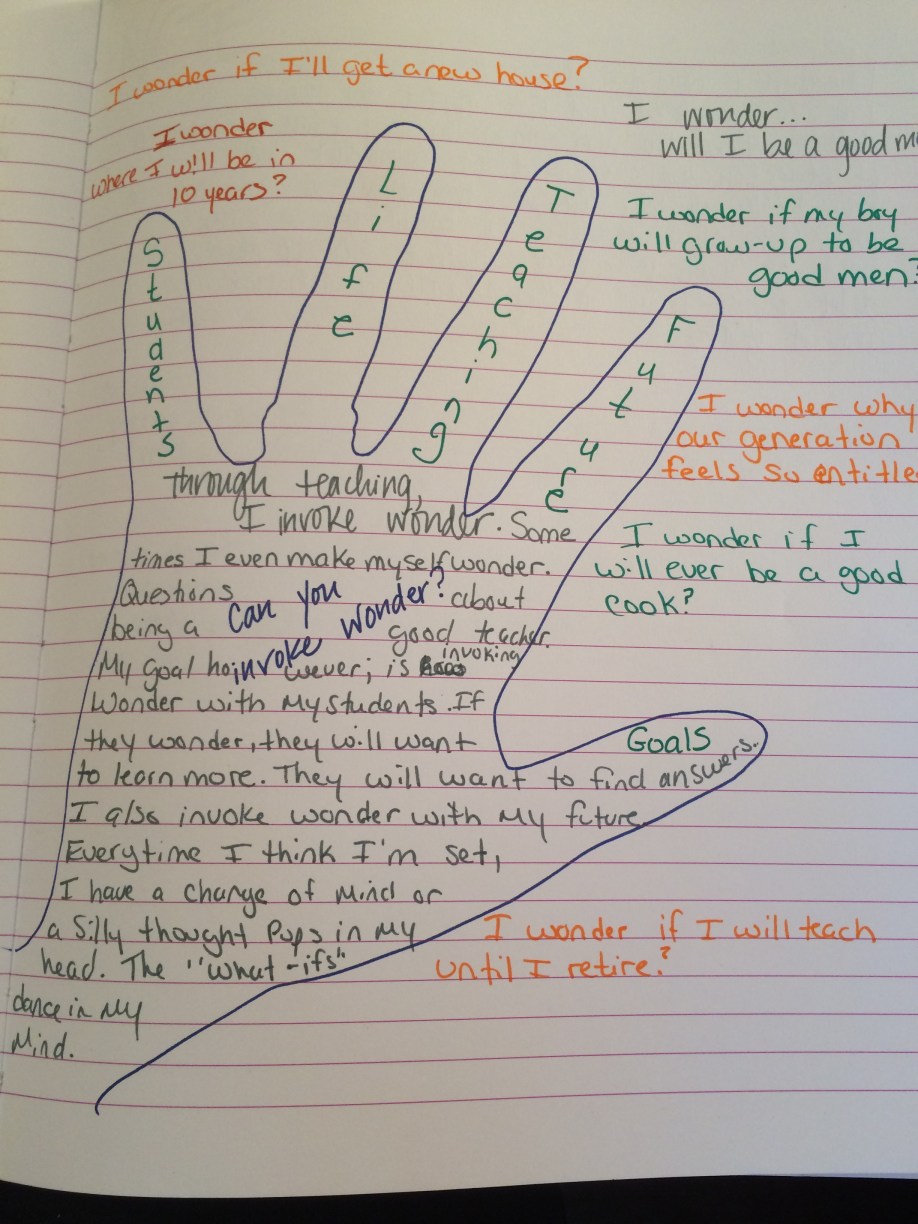 I wonder if I'll get a new house?
I wonder
where I will be in
10 years?
I wonder...
will I be a good
I wonder if my boy
will grow-up to be
good men?
I wonder why
our generation
feels so entitle
I wonder if I
will ever be a good
cook?
Students
Life
Teaching
Future
Goals
through teaching,
I invoke wonder. Some
times I even make myself wonder.
Questions about
being a good teacher.
can you
invoke wonder?
My goal however; is invoking
Wonder with my students. If
they wonder, they will want
to learn more. They will want to find answers.
I also invoke wonder with my future.
Everytime I think I'm set,
I have a change of mind or
a silly thought pops in my
head. The "what-ifs"
dance in my
Mind.
I wonder if I will teach
until I retire?